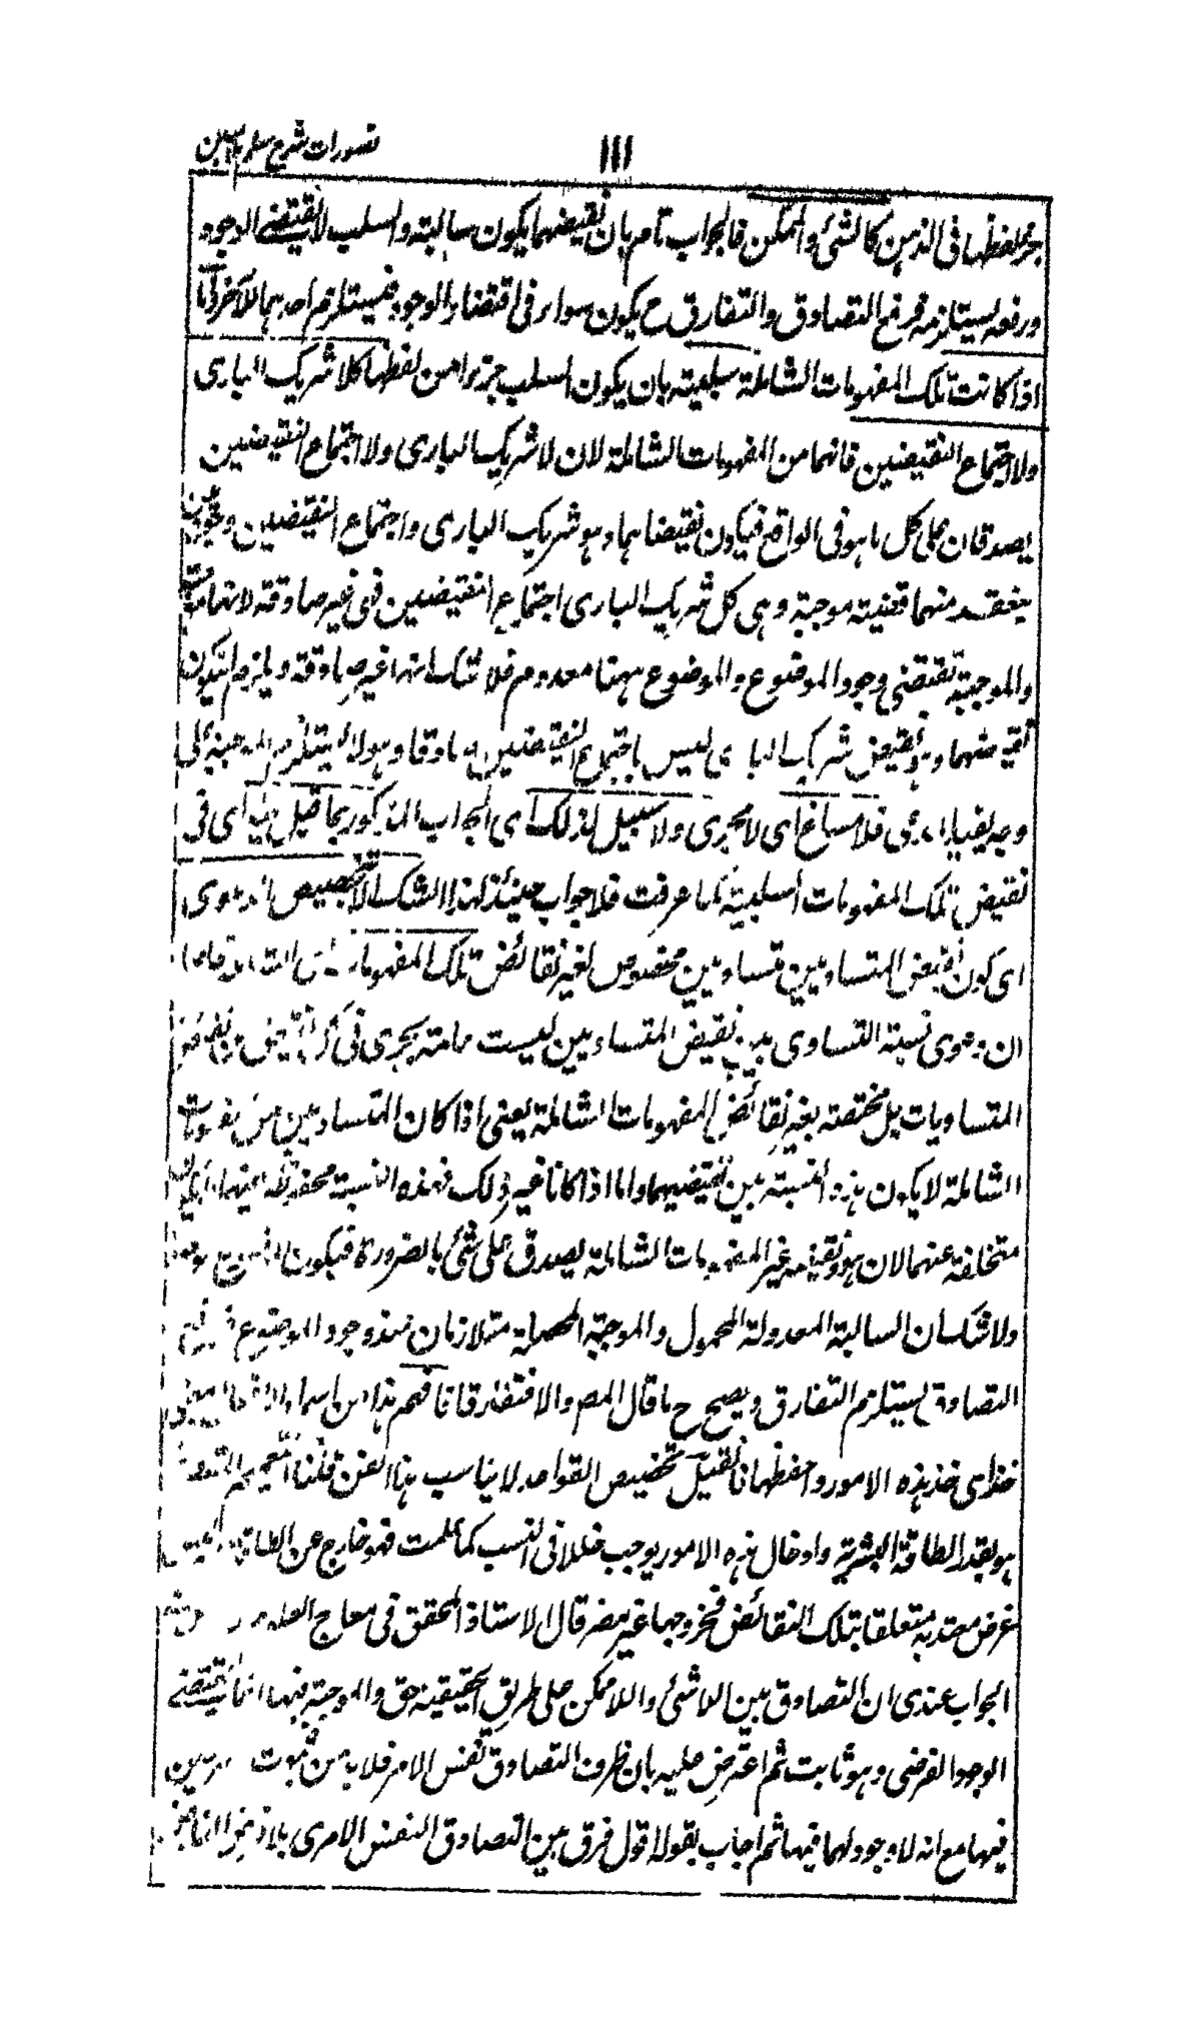 تصورات شرح سلم ملا مبين
١١١
يجر لفظها فى الذهن كالشئ والممكن فالجواب تام بان نقيضهما يكون سالبة والسلب لا يقتضى الوجود
ورفعه يستلزمه فرفع التصادق والتفارق ح يكون سواء فى اقتضاء الوجود فيستلزم احدهما الآخر اما
اذا كانت تلك المفهومات الشاملة سلبية بان يكون السلب جزءا من لفظها كلا شريك البارى
ولا اجتماع النقيضين فانهما من المفهومات الشاملة لان لا شريك البارى ولا اجتماع النقيضين
يصدقان على كل ما هو فى الواقع فيكون نقيضاهما وهو شريك البارى واجتماع النقيضين
ينعقد منهما قضية موجبة وهى كل شريك البارى اجتماع النقيضين فهى غير صادقة لانها
والموجبة تقتضى وجود الموضوع والموضوع ههنا معدوم فلا شك انها غير صادقة ويلزم ان يكون
نقيضهما وهو نقيض شريك البارى ليس باجتماع النقيضين صادقا وهو لا يستلزم الموجبة
فلا مساغ اى لا مجرى ولا سبيل لذلك اى الجواب المذكور بما قيل فيه اى فى
نقيض تلك المفهومات السلبية كما عرفت فلا جواب حينئذ لهذا الشك الا بتخصيص الدعوى
اى كون نقيض المتساويين متساويين مخصوص لغير نقائض تلك المفهومات
ان دعوى نسبة التساوى بين نقيض المتساويين ليست عامة يجرى فى
المتساويات بل مختصة بغير نقائض المفهومات الشاملة يعنى اذا كان المتساويين من
الشاملة لا يكون هذه النسبة بين نقيضيهما واما اذا كانا غير ذلك فهذه النسبة محفوظة
متخلفة عنهما لان هو نقيضه غير المفهومات الشاملة يصدق على شئ بالضرورة فيكون
ولا شك ان السالبة المعدولة المحمول والموجبة المحصلة متلازمان عند وجود الموضوع
التصادق يستلزم التفارق ويصح ح ما قال المص والا فتفارقا فافهم هذا
خذ اى خذ هذه الامور واحفظها فان قيل تخصيص القواعد لا يناسب هذا الفن قلنا
هو بقدر الطاقة البشرية وادخال هذه الامور يوجب خللا فى النسب كما علمت فهو خارج عن الطاقة
غرض معتد به متعلقا بتلك النقائض فخروجها غير مضر قال الاستاذ المحقق فى معارج العلوم
الجواب عندى ان التصادق بين اللاشئ واللاممكن على طريق الحقيقية حق والموجبة فيها انما يقتضى
الوجود الفرضى وهو ثابت ثم اعترض عليه بان ظرف التصادق نفس الامر فلا بد من ثبوت
فيها مع انه لا وجود لهما فيها ثم اجاب بقوله اقول فرق بين التصادق النفس الامرى